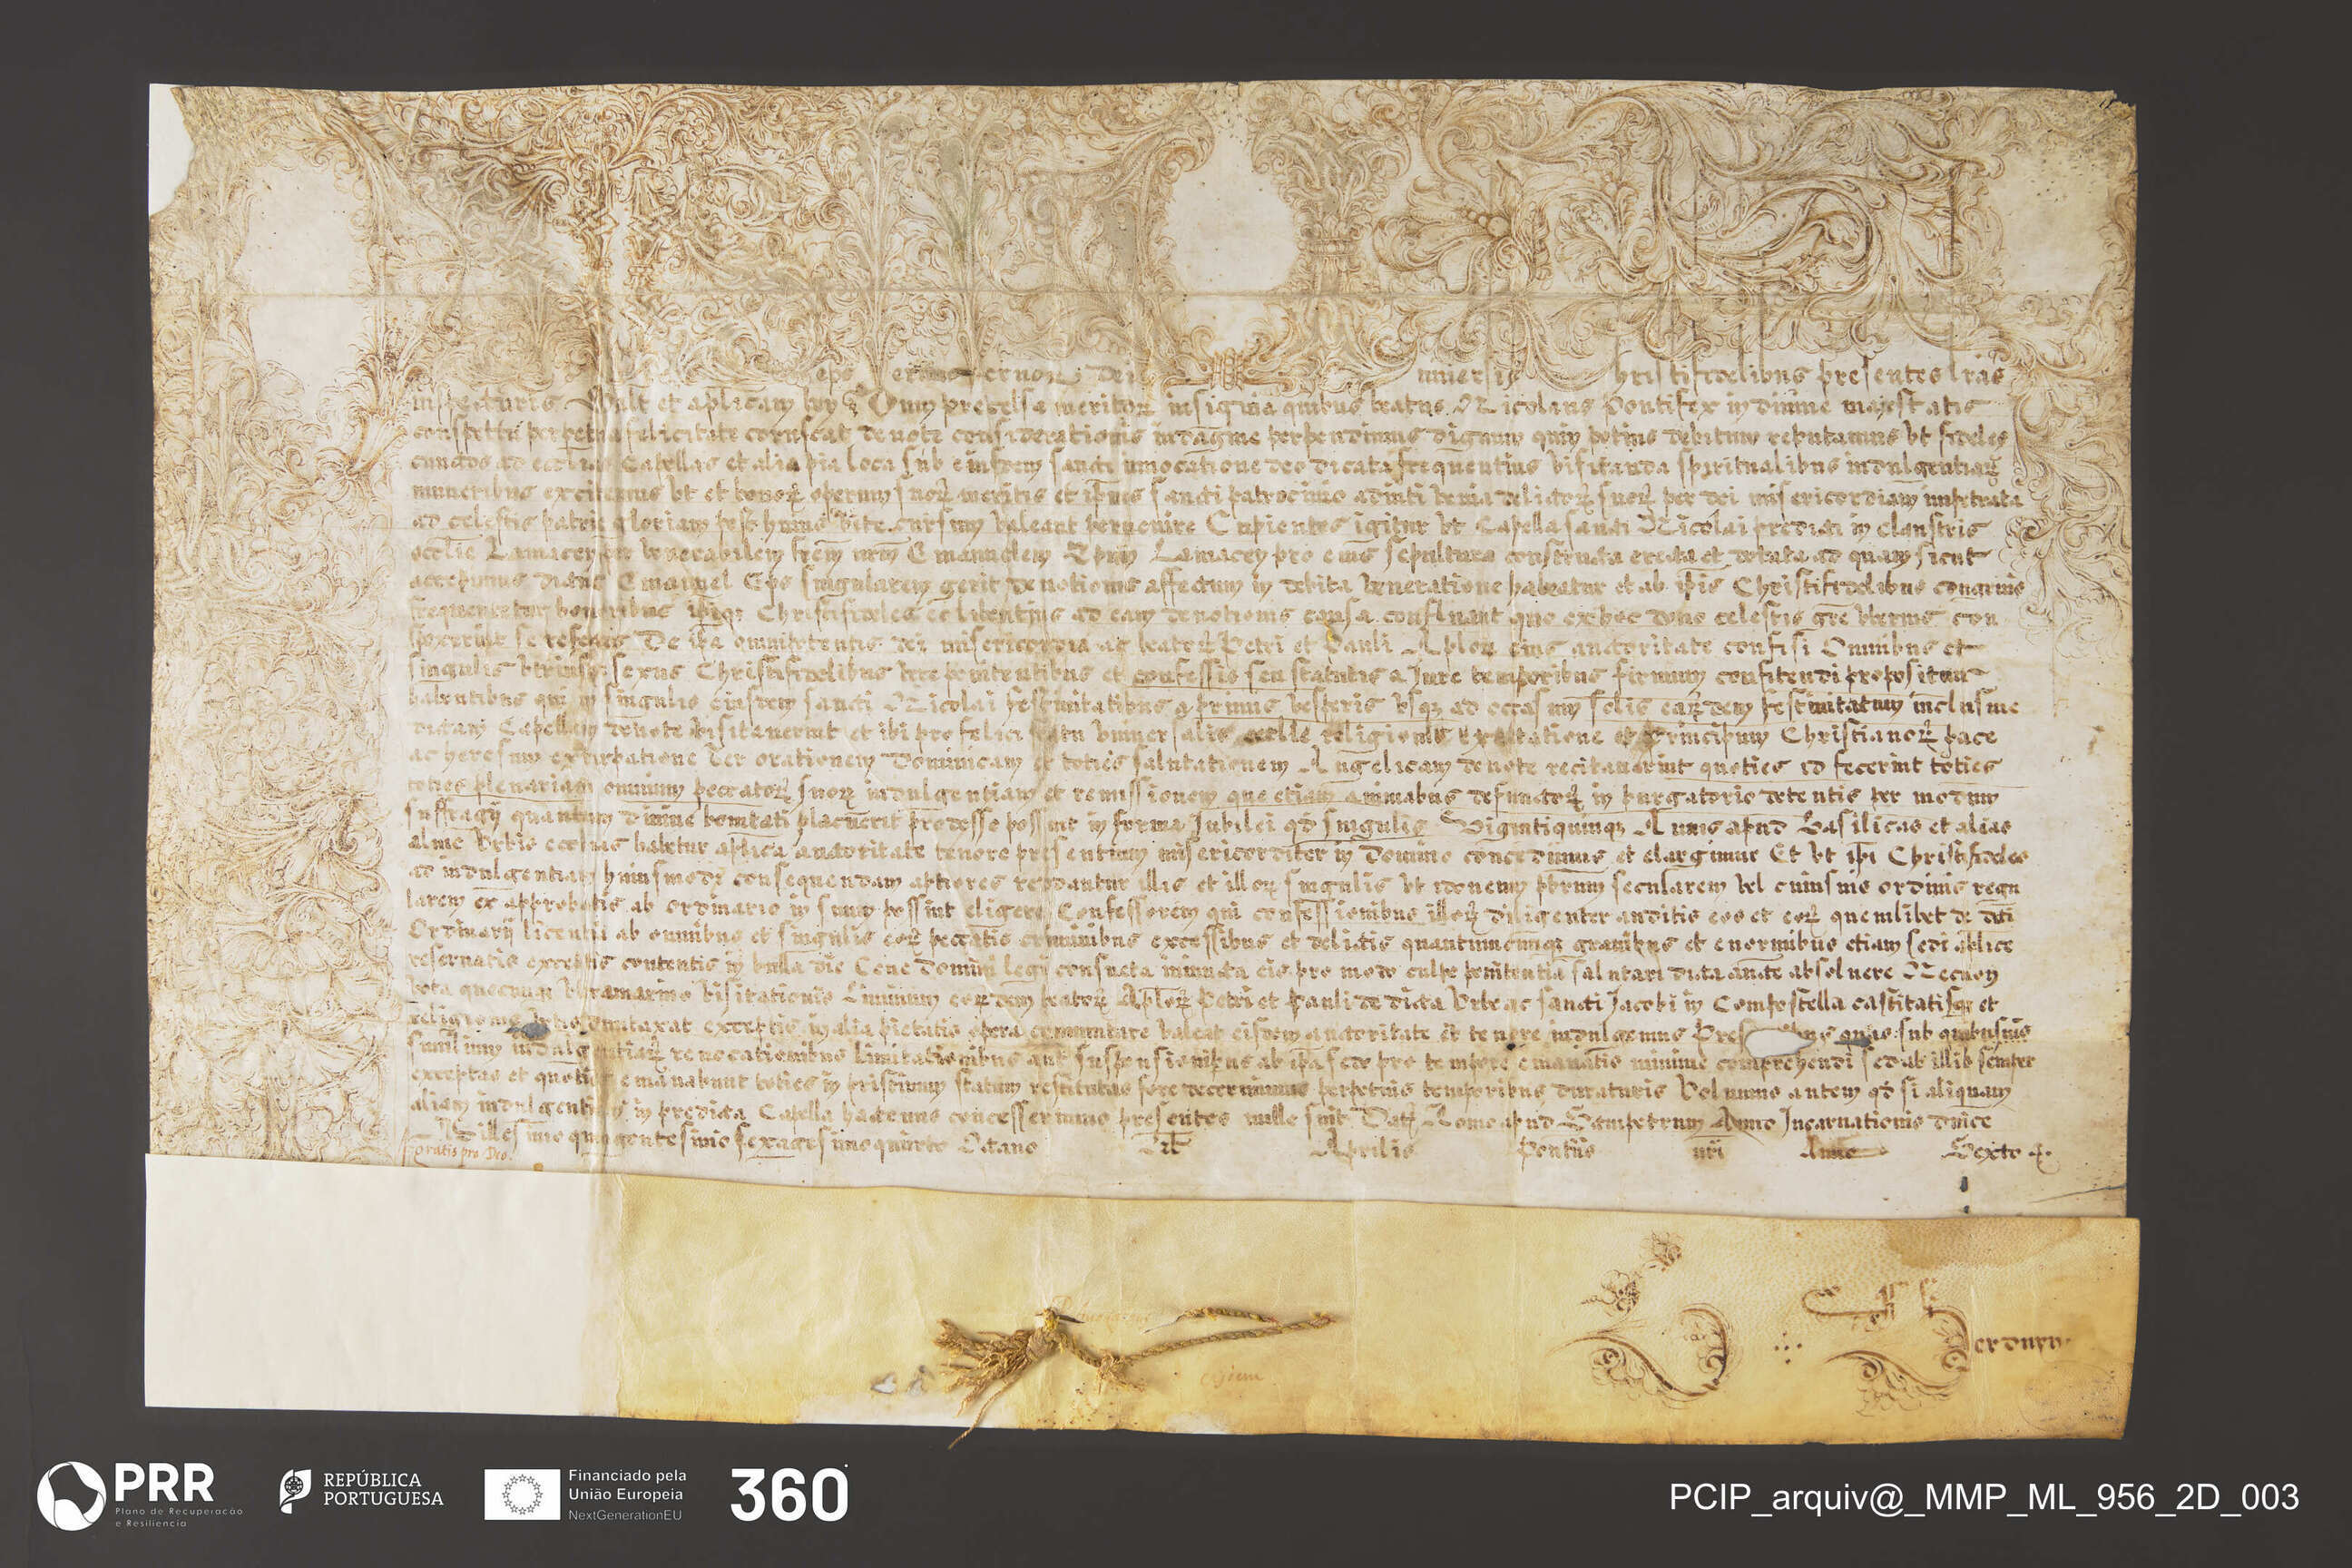 eps seruus seruor Dei vniuersis Christifidelibus presentes lras
inspecturis Salt et aplicam ben Dum precelsa meritor insignia quibus beatus Nicolaus Pontifex in diuine maiestatis
conspectu perpetua felicitate coruscat deuote considerationis indagine perpendimus dignum quin potius debitum reputamus vt fideles
cunctos ad ecclias Capellas et alia pia loca sub eiusdem sancti inuocatione deo dicata frequentius visitanda spiritualibus indulgentiar
muneribus excitemus vt et bonor operum suor meritis et ipsius sancti patrocinio adiuti venia delictor suor per dei misericordiam impetrata
ad celestis patrie gloriam post huius vite cursum valeant peruenire Cupientes igitur vt Capella sancti Nicolai predicti in claustris
ecclie Lamacen per venerabilem frem nrm Emanuelem Epm Lamacen pro eius sepultura constructa erecta et dotata ad quam sicut
accepimus dictus Emanuel Eps singularem gerit deuotionis affectum in debita veneratione habeatur et ab ipis Christifidelibus congruis
frequentetur honoribus ipiq Christifideles eo libentius ad eam deuotionis causa confluant quo ex hoc dono celestis gre vberius con
spexerint se refectos De ipa omnipotentis dei misericordia ac beator Petri et Pauli Aplor eius auctoritate confisi Omnibus et
singulis vtriusq sexus Christifidelibus vere penitentibus et confessis seu statutis a Jure temporibus firmum confitendi propositum
habentibus qui in singulis eiusdem sancti Nicolai festiuitatibus a primis vesperis vsq ad occasum solis eardem festiuitatum inclusiue
dictam Capellam deuote visitauerint et ibi pro felici statu vniuersalis ecclie religionis exaltatione et Principum Christianor pace
ac heresum extirpatione Ter orationem Dominicam et toties salutationem Angelicam deuote recitauerint quoties id fecerint toties
toties plenariam omnium peccator suor indulgentiam et remissionem que etiam animabus defunctor in purgatorio detentis per modum
suffragij quantum diuine bonitati placuerit prodesse possint in forma Jubilei qd singulis Vigintiquinq Annis apud Basilicas et alias
alme Vrbis ecclias habetur aplica auctoritate tenore presentium misericorditer in Domino concedimus et elargimur Et vt ipi Christifideles
ad indulgentiam huiusmodi consequendam aptiores reddantur illis et illor singulis vt idoneum pbrum secularem vel cuiusuis ordinis regu
larem ex approbatis ab ordinario in suum possint eligere Confessorem qui confessionibus illor diligenter auditis eos et eor quemlibet de dicti
Ordinarij licentia ab omnibus et singulis eor peccatis criminibus excessibus et delictis quantumcumq grauibus et enormibus etiam sedi aplice
reseruatis exceptis contentis in bulla die Cene Domini legi consueta iniuncta eis pro modo culpe penitentia salutari dicta aucte absoluere Necnon
vota quecumq vltramarino visitationis Liminum eordem beator Aplor Petri et Pauli de dicta Vrbe ac sancti Jacobi in Compostella castitatisq et
religionis votis dumtaxat exceptis in alia pietatis opera commutare valeat eisdem auctoritate et tenore indulgemus Presentibus quas sub quibusuis
similium indulgentiar reuocationibus limitationibus aut suspensionibus ab ipa sede pro tempore emanatis minime comprehendi sed ab illis semper
exceptas et quoties emanabunt toties in pristinum statum restitutas fore decernimus perpetuis temporibus duraturis Volumus autem qd si aliquam
aliam indulgentiam in predicta Capella hactenus concesserimus presentes nulle sint Dat Rome apud Sampetrum Anno Incarnationis dnice
Millesimo quingentesimo sexagesimoquinto Octauo Kl Aprilis Pontus nri Anno Sexto
gratis pro Deo
PRR
Plano de Recuperação
e Resiliência
REPÚBLICA
PORTUGUESA
Financiado pela
União Europeia
NextGenerationEU
360
PCIP_arquiv@_MMP_ML_956_2D_003